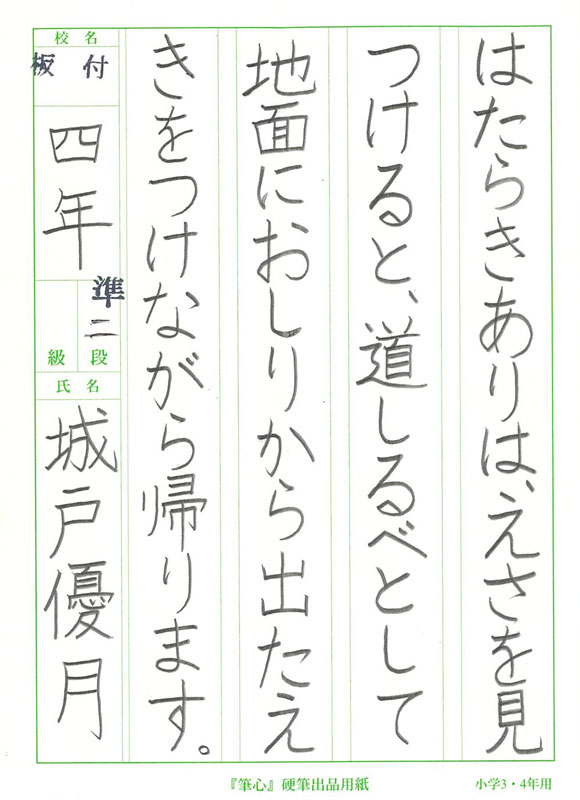 はたらきありは、えさを見
つけると、道しるべとして
地面におしりから出たえ
きをつけながら帰ります。
校名
板付
四年
準二
段
級
氏名
城戸優月
『筆心』硬筆出品用紙
小学3・4年用